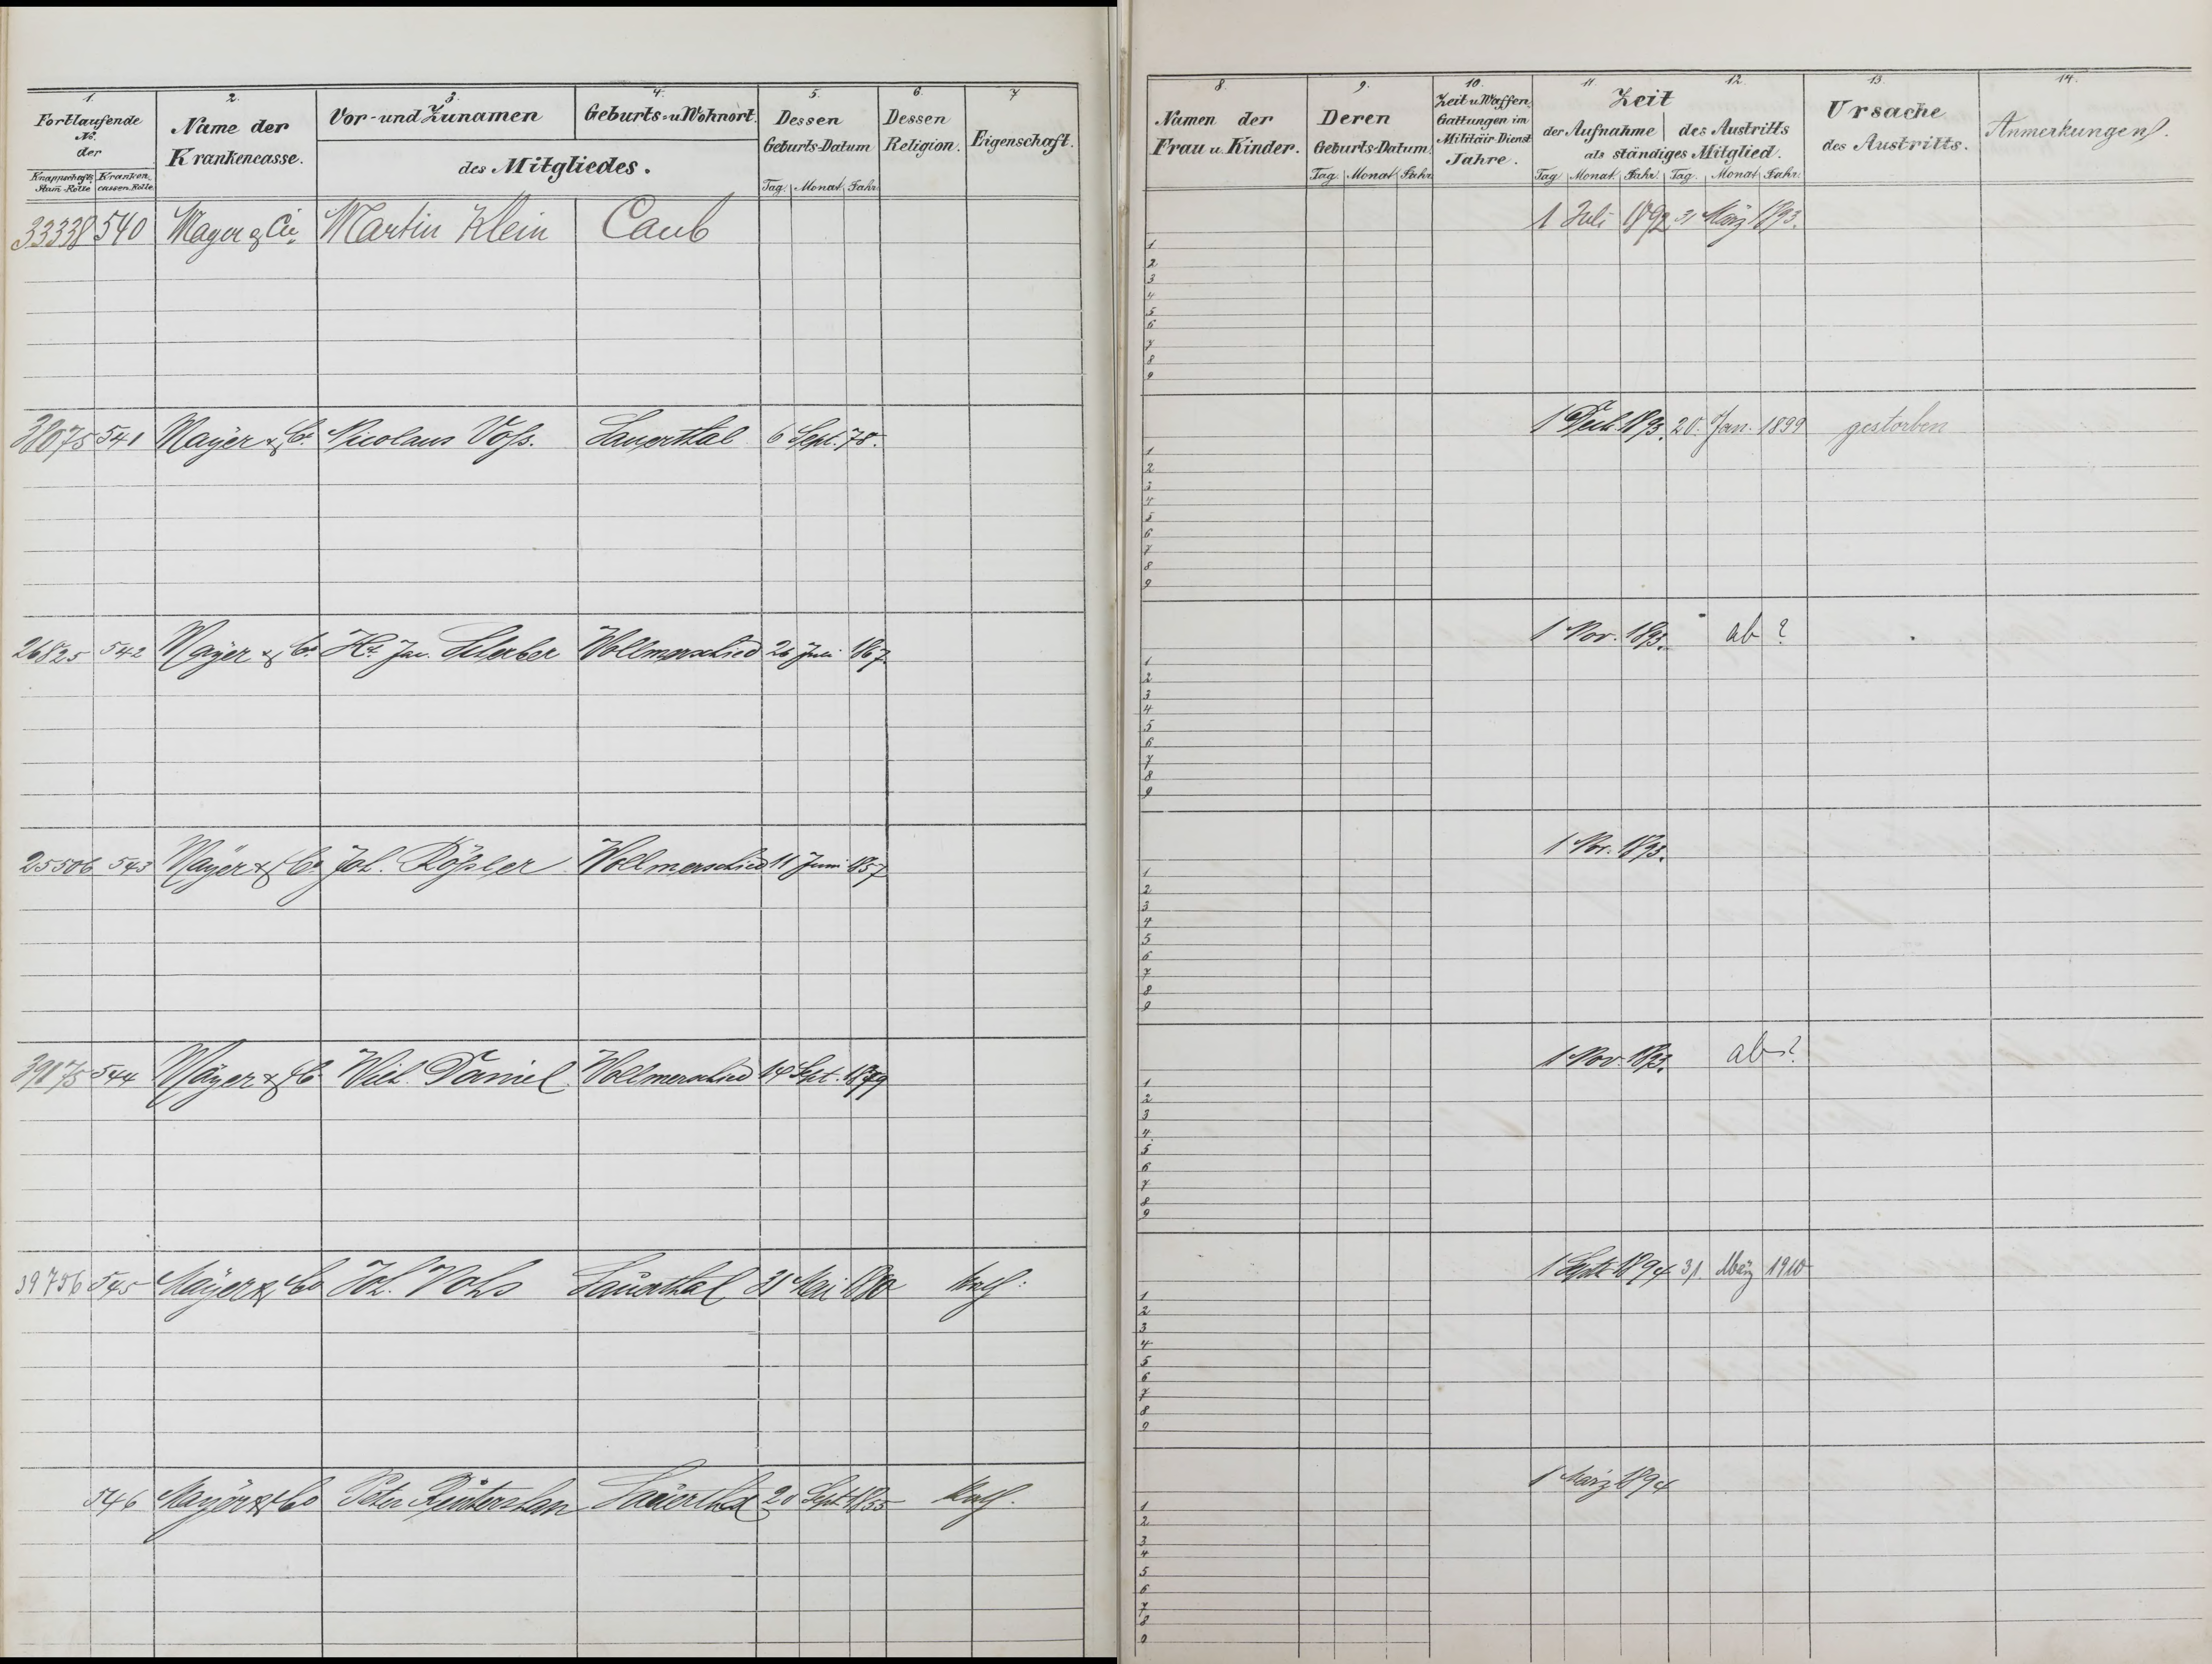 1. 2. 3. 4. 5. 6. 7.
Fortlaufende No. der
Knappschafts Stam-Rolle Kranken cassen-Rolle
Name der Krankencasse.
Vor- und Zunamen Geburts- u. Wohnort.
des Mitgliedes.
Dessen Geburts-Datum
Tag. Monat. Jahr.
Dessen Religion.
Eigenschaft.
33338 540 Mayer & Cie. Martin Klein Caub
38075 541 Mayer & Co. Nicolaus Voss. Sauerthal 6 Sept. 78.
26825 542 Mayer & Co. Wollmerschied 26 1867
25506 543 Mayer & Co. Joh. Rössler Wollmerschied 11 Juni 1857
39175 544 Mayer & Co Wilh. Daniel Wollmerschied 14 Sept. 1879
39756 545 Mayer & Co Joh. Vohs Sauerthal 31 Mai 1880 kath.
546 Mayer & Co Peter Sauerthal 20 Sept. 1855 kath.
8. 9. 10. 11. 12. 13. 14.
Namen der Frau u. Kinder.
Deren Geburts-Datum.
Tag. Monat. Jahr.
Zeit u. Waffen Gattungen im Militäir Dienst Jahre.
Zeit
der Aufnahme des Austritts
als ständiges Mitglied.
Tag. Monat. Jahr. Tag. Monat. Jahr.
Ursache des Austritts.
Anmerkungen.
1 Juli 1892 31 März 1893.
1
2
3
4
5
6
7
8
9
1 1893. 20. Jan. 1899 gestorben
1
2
3
4
5
6
7
8
9
1 Nov. 1893. ab ?
1
2
3
4
5
6
7
8
9
1 Nov. 1893.
1
2
3
4
5
6
7
8
9
1 Nov. 1893. ab ?
1
2
3
4
5
6
7
8
9
1 Septb 1894 31 März 1910
1
2
3
4
5
6
7
8
9
1 März 1894
1
2
3
4
5
6
7
8
9